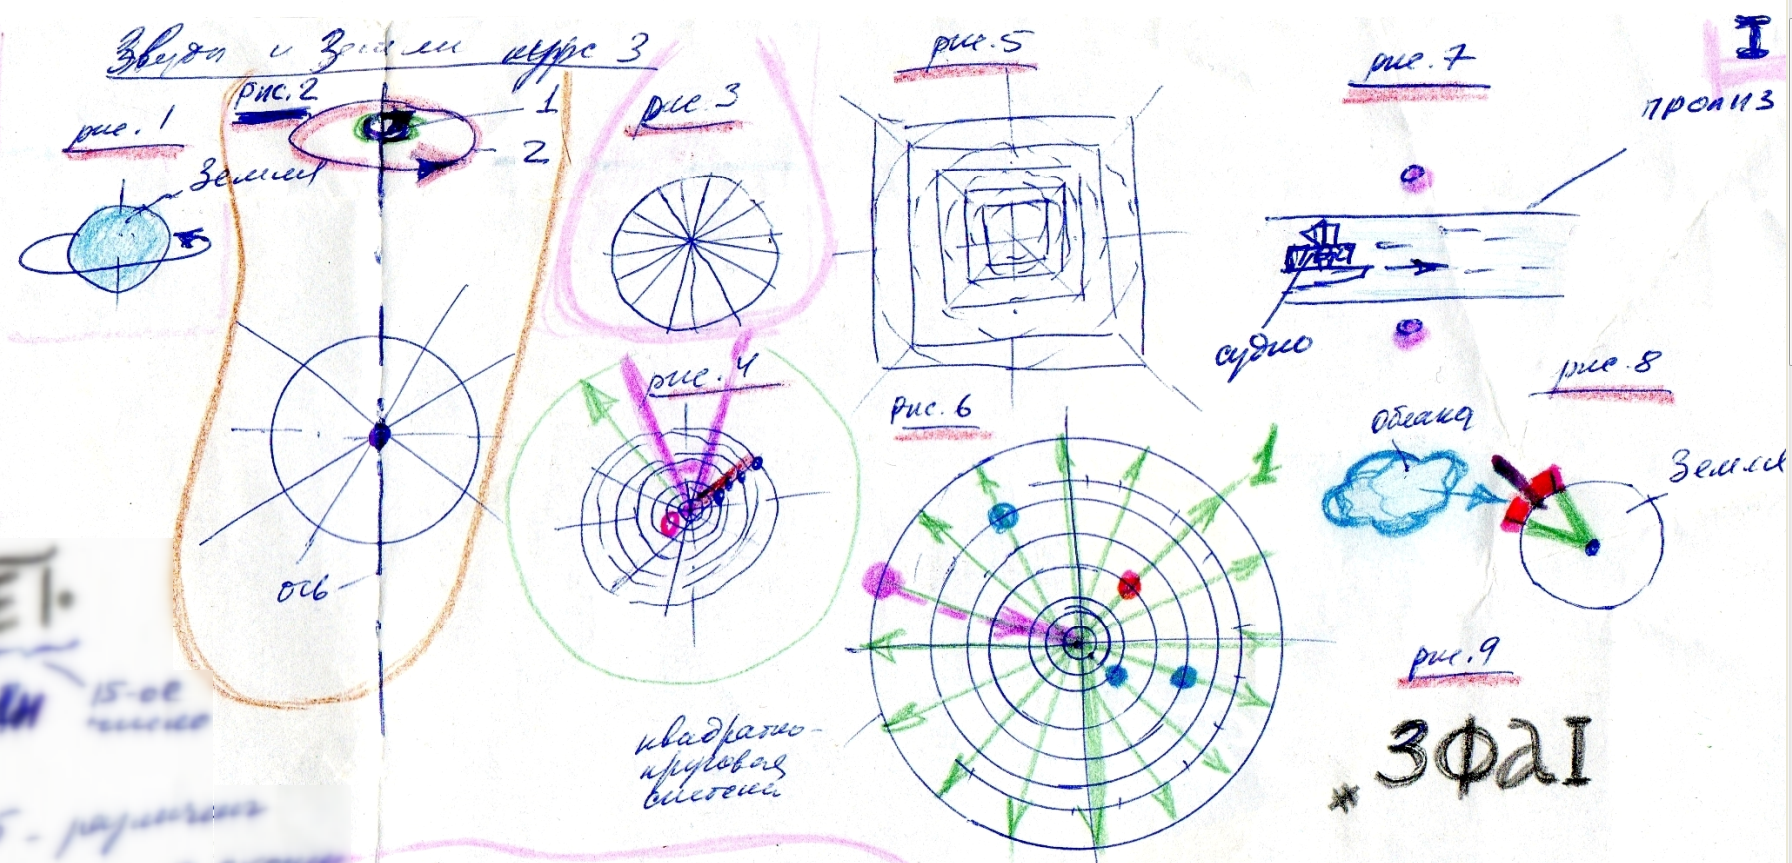 Звуки и Земли курс 3
I
рис. 1
Земля
рис. 2
1
2
ось
рис. 3
рис. 4
квадратно-
круговая
система
рис. 5
рис. 6
1
рис. 7
пролиз
судно
рис. 8
облака
Земля
рис. 9
* ЗФДІ
15-ое
число
5 - различать